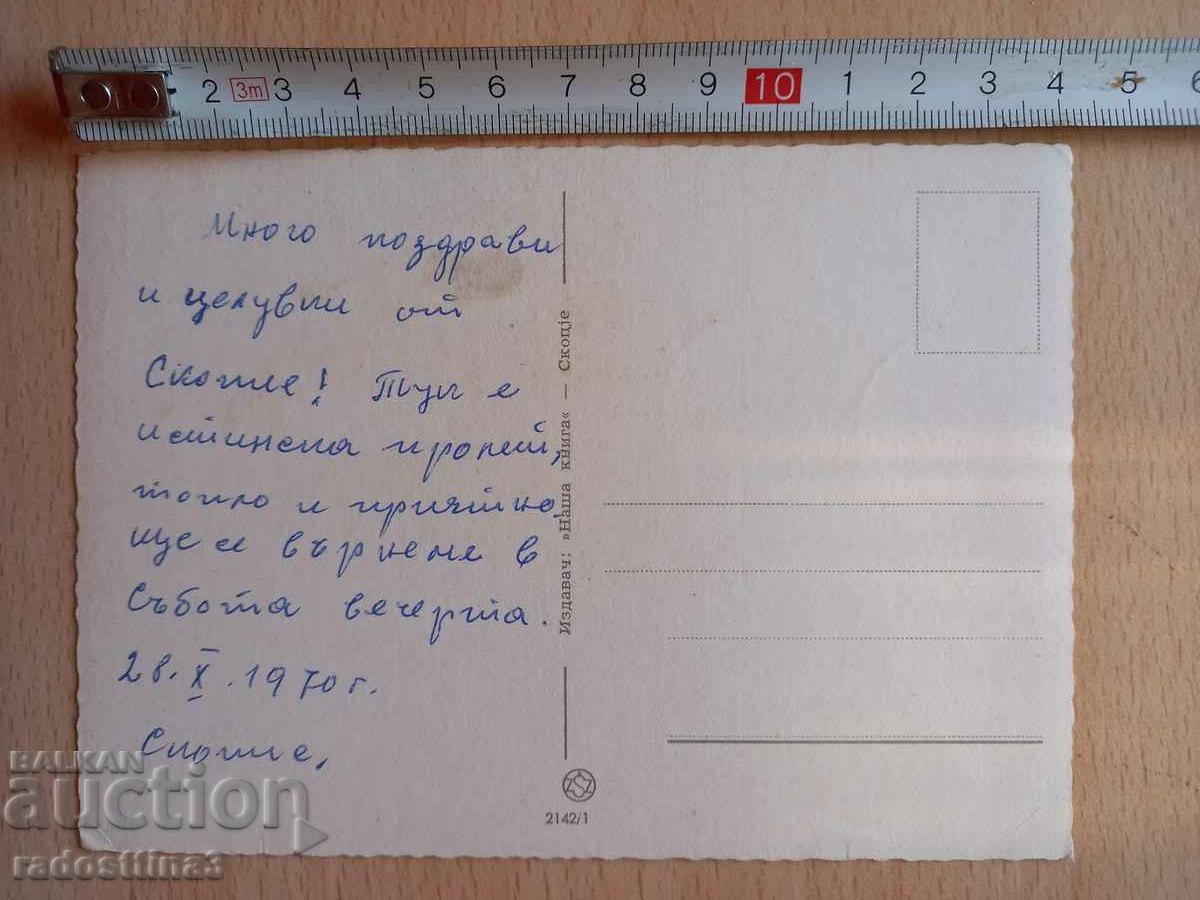 2 3m 3 4 5 6 7 8 9 10 1 2 3 4 5 6
Много поздрави
и целувки от
Скопие! Тук е
истинска пролет,
топло и приятно.
Ще се върнеме в
събота вечерта.
28. X. 1970 г.
Скопие,
Издавач: »Наша книга« — Скопје
2142/1
BALKAN
auction
radosttina3